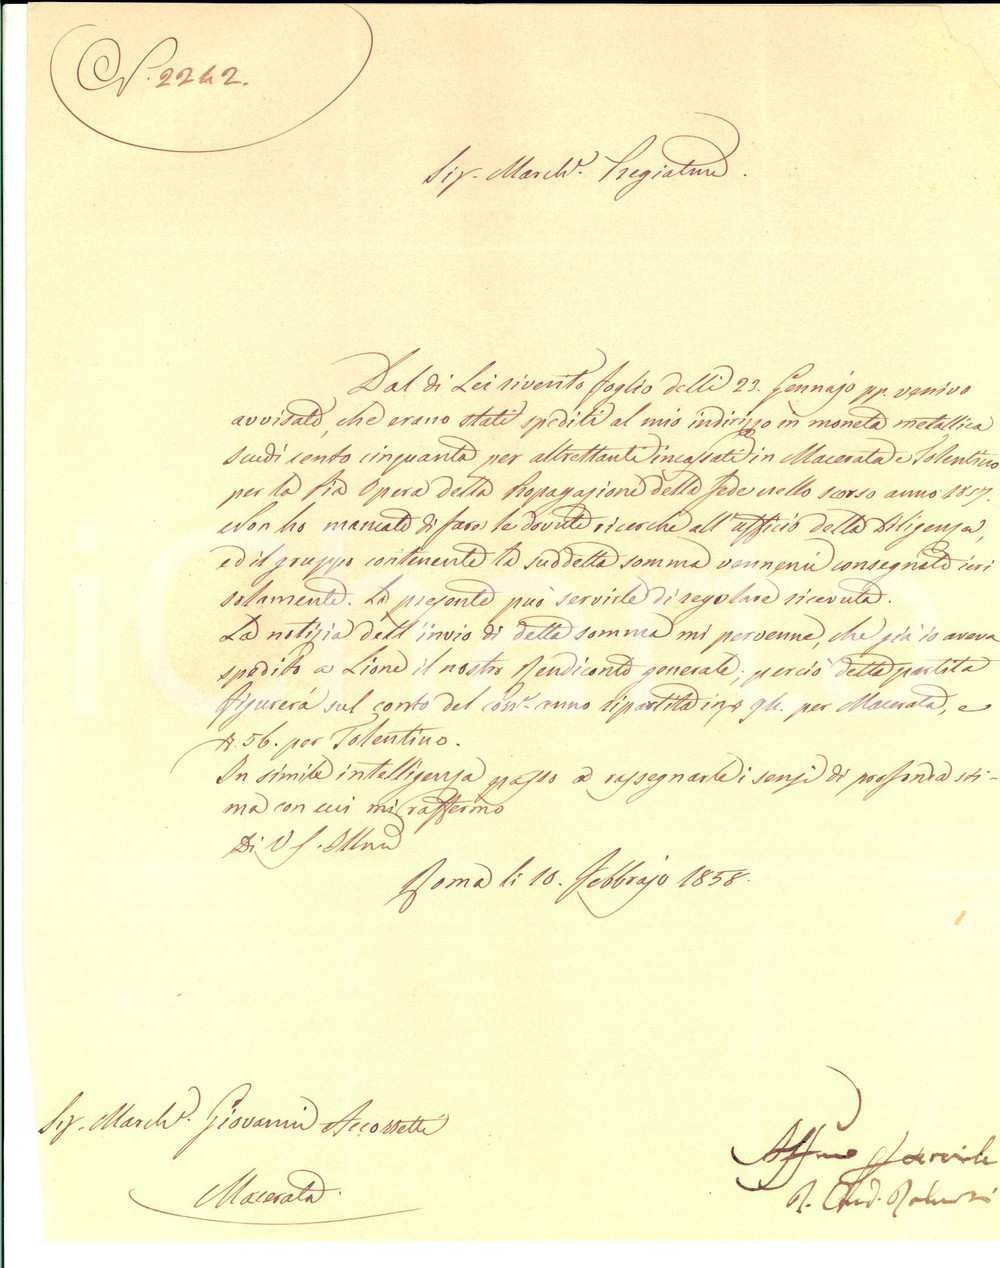 N. 2242.
Sig. March.e Pregiatmo.
Dal di Lei rivento foglio delli 23. Gennajo pp. venivo
avvisato, che erano stati spediti al mio indirizzo in moneta metallica
scudi cento cinquanta per altrettanti incassati in Macerata e Tolentino
per la Pia Opera della Propagazione della Fede nello scorso anno 1857.
Non ho mancato di fare le dovute ricerche all'uffizio della Diligenza,
ed il gruppo contenente la suddetta somma vennemi consegnato ieri
solamente. La presente può servirle di regolare ricevuta.
La notizia dell'invio di detta somma mi pervenne, che già io aveva
spedito a Lione il nostro Rendiconto generale; perciò detta partita
figurerà sul conto del corr. anno ripartita in 94. per Macerata, e
56. per Tolentino.
In simile intelligenza passo a rassegnarle i sensi di profonda sti-
ma con cui mi raffermo
Di V. S. Illma
Roma li 10. Febbrajo 1858.
Sig. March.e Giovanni Accorretti
Macerata.
Affmo Servitore